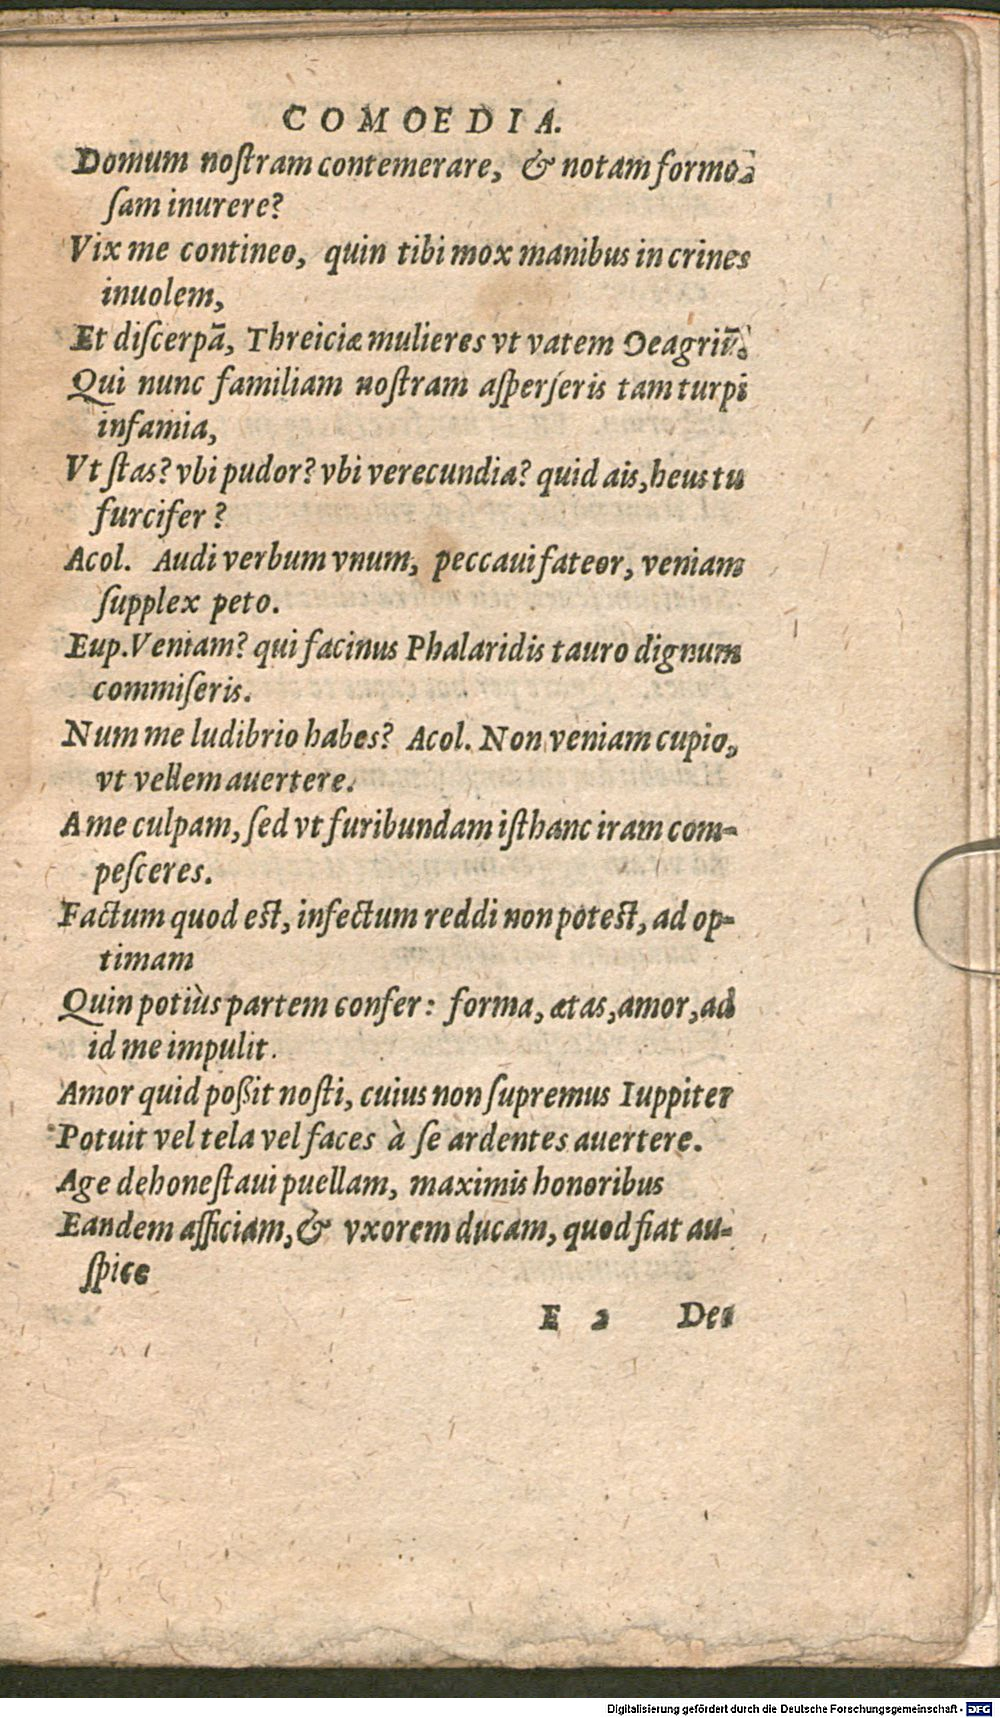 COMOEDIA.
Domum noſtram contemerare, & notam formo-
ſam inurere?
Vix me contineo, quin tibi mox manibus in crines
inuolem,
Et diſcerpā, Threiciæ mulieres vt vatem Oeagriū.
Qui nunc familiam noſtram aſperſeris tam turpi
infamia,
Vt ſtas? vbi pudor? vbi verecundia? quid ais, heus tu
furcifer?
Acol. Audi verbum vnum, peccaui fateor, veniam
ſupplex peto.
Eup. Veniam? qui facinus Phalaridis tauro dignum
commiſeris.
Num me ludibrio habes? Acol. Non veniam cupio,
vt vellem auertere.
A me culpam, ſed vt furibundam iſthanc iram com-
peſceres.
Factum quod eſt, infectum reddi non poteſt, ad op-
timam
Quin potiùs partem confer: forma, ætas, amor, ad
id me impulit.
Amor quid poßit noſti, cuius non ſupremus Iuppiter
Potuit vel tela vel faces à ſe ardentes auertere.
Age dehoneſtaui puellam, maximis honoribus
Eandem afficiam, & vxorem ducam, quod fiat au-
ſpice
E 2 Dei
Digitalisierung gefördert durch die Deutsche Forschungsgemeinschaft - DFG